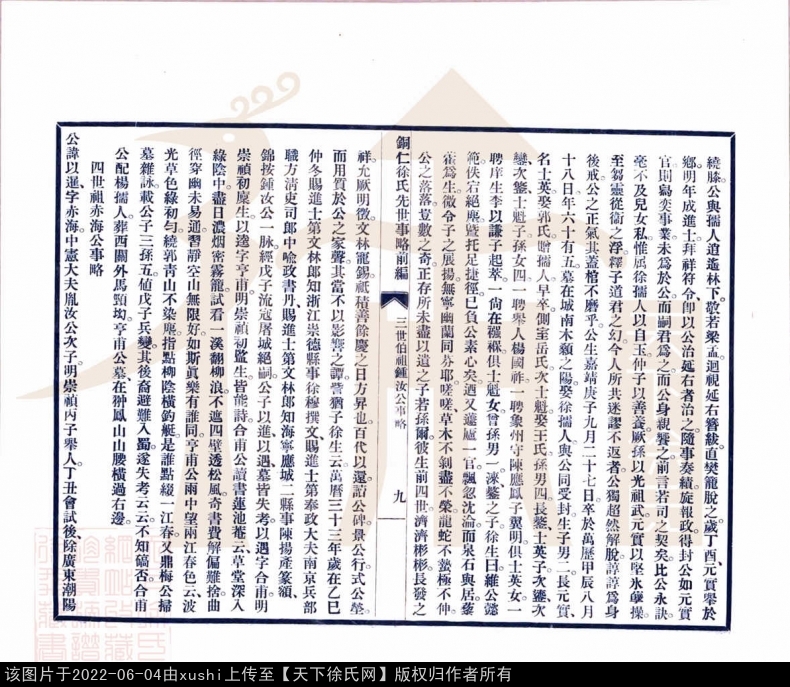 繞膝公與孺人逍遙林下敬若梁孟迴視延右簪紱直樊籠脫之歲丁酉元實舉於
鄉明年成進士拜祥符令卽以公治延右者治之隨事奏績旋報政得封公如元實
官則鷁奕事業未爲於公而嗣君爲之而公身親饗之前言若司之契矣比公永訣
毫不及兒女私惟屬徐孺人以自玉仲子以善養厥孫以光祖武元實以堅氷櫱操
至芻靈從衞之浮釋子道君之幻令人所共迷謬不返者公獨超然解脫諄諄爲身
後戒公之正氣其蓋棺不磨乎公生嘉靖庚子九月二十七日卒於萬歷甲辰八月
十八日年六十有五墓在城南木穎之陽娶徐孺人與公同受封生子男二長元實
名士英娶郭氏贈孺人早卒側室岳氏次士魁娶王氏孫男四長鏊士英子次鑾次
鑾次鑒士魁子孫女四一聘舉人楊國祚一聘象州守陳應鳳子翼明俱士英女一
聘庠生李以謙子起萃一尙在襁褓俱士魁女曾孫男一淶鏊之子徐生曰維公懿
範佚宕絕塵暨托足捷徑已負公素心矣迺又蘧廬一官飄忽沈淪而泉石與居藜
藿爲生微令子之展揚無寧幽蘭同芬耶嗟嗟草木不剝盡不榮龍蛇不蟄極不伸
公之落落豈數之奇正存所未盡以遺之子若孫爾彼生前四世濟濟彬彬長發之
銅仁徐氏先世事略前編
三世伯祖鍾汝公事略
九
祥允厥明徵文林寵錫祗積善餘慶之日方昇也百代以還諮公碑景公行式公塋
而用質於公之家聲其當不以影響之譚訾猶子徐生云萬曆三十三年歲在乙巳
仲冬賜進士第文林郎知浙江崇德縣事徐穆撰文賜進士第奉政大夫南京兵部
職方淸吏司郎中喻政書丹賜進士第文林郎知海寧應城二縣事陳揚產篆額
錦按鍾汝公一脉經戊子流寇屠城絕嗣公子以進以遇墓皆失考以遇字合甫明
崇禎初廩生以逵字亨甫明崇禎初鰲生皆能詩合甫公讀書蓮池菴云草堂深入
綠陰中盡日濃烟密霧籠試看一溪翻柳浪不遮四壁透松風奇書費解偏難捨曲
徑穿幽未易通習靜空山無限好如斯眞樂有誰同亨甫公雨中望兩江春色云波
光草色綠初勻繞郭靑山不染塵指點柳陰橫釣艇是誰點綴一江春又鼎梅公掃
墓雜詠載公子三孫五値戊子兵變其後裔避難入蜀遂失考云云不知確否合甫
公配楊孺人葬西關外馬頸坳亨甫公墓在翀鳳山山腰橫過右邊
四世祖赤海公事略
公諱以暹字赤海中憲大夫胤汝公次子明崇禎丙子舉人丁丑會試後除廣東潮陽
该图片于2022-06-04由xushi上传至【天下徐氏网】版权归作者所有